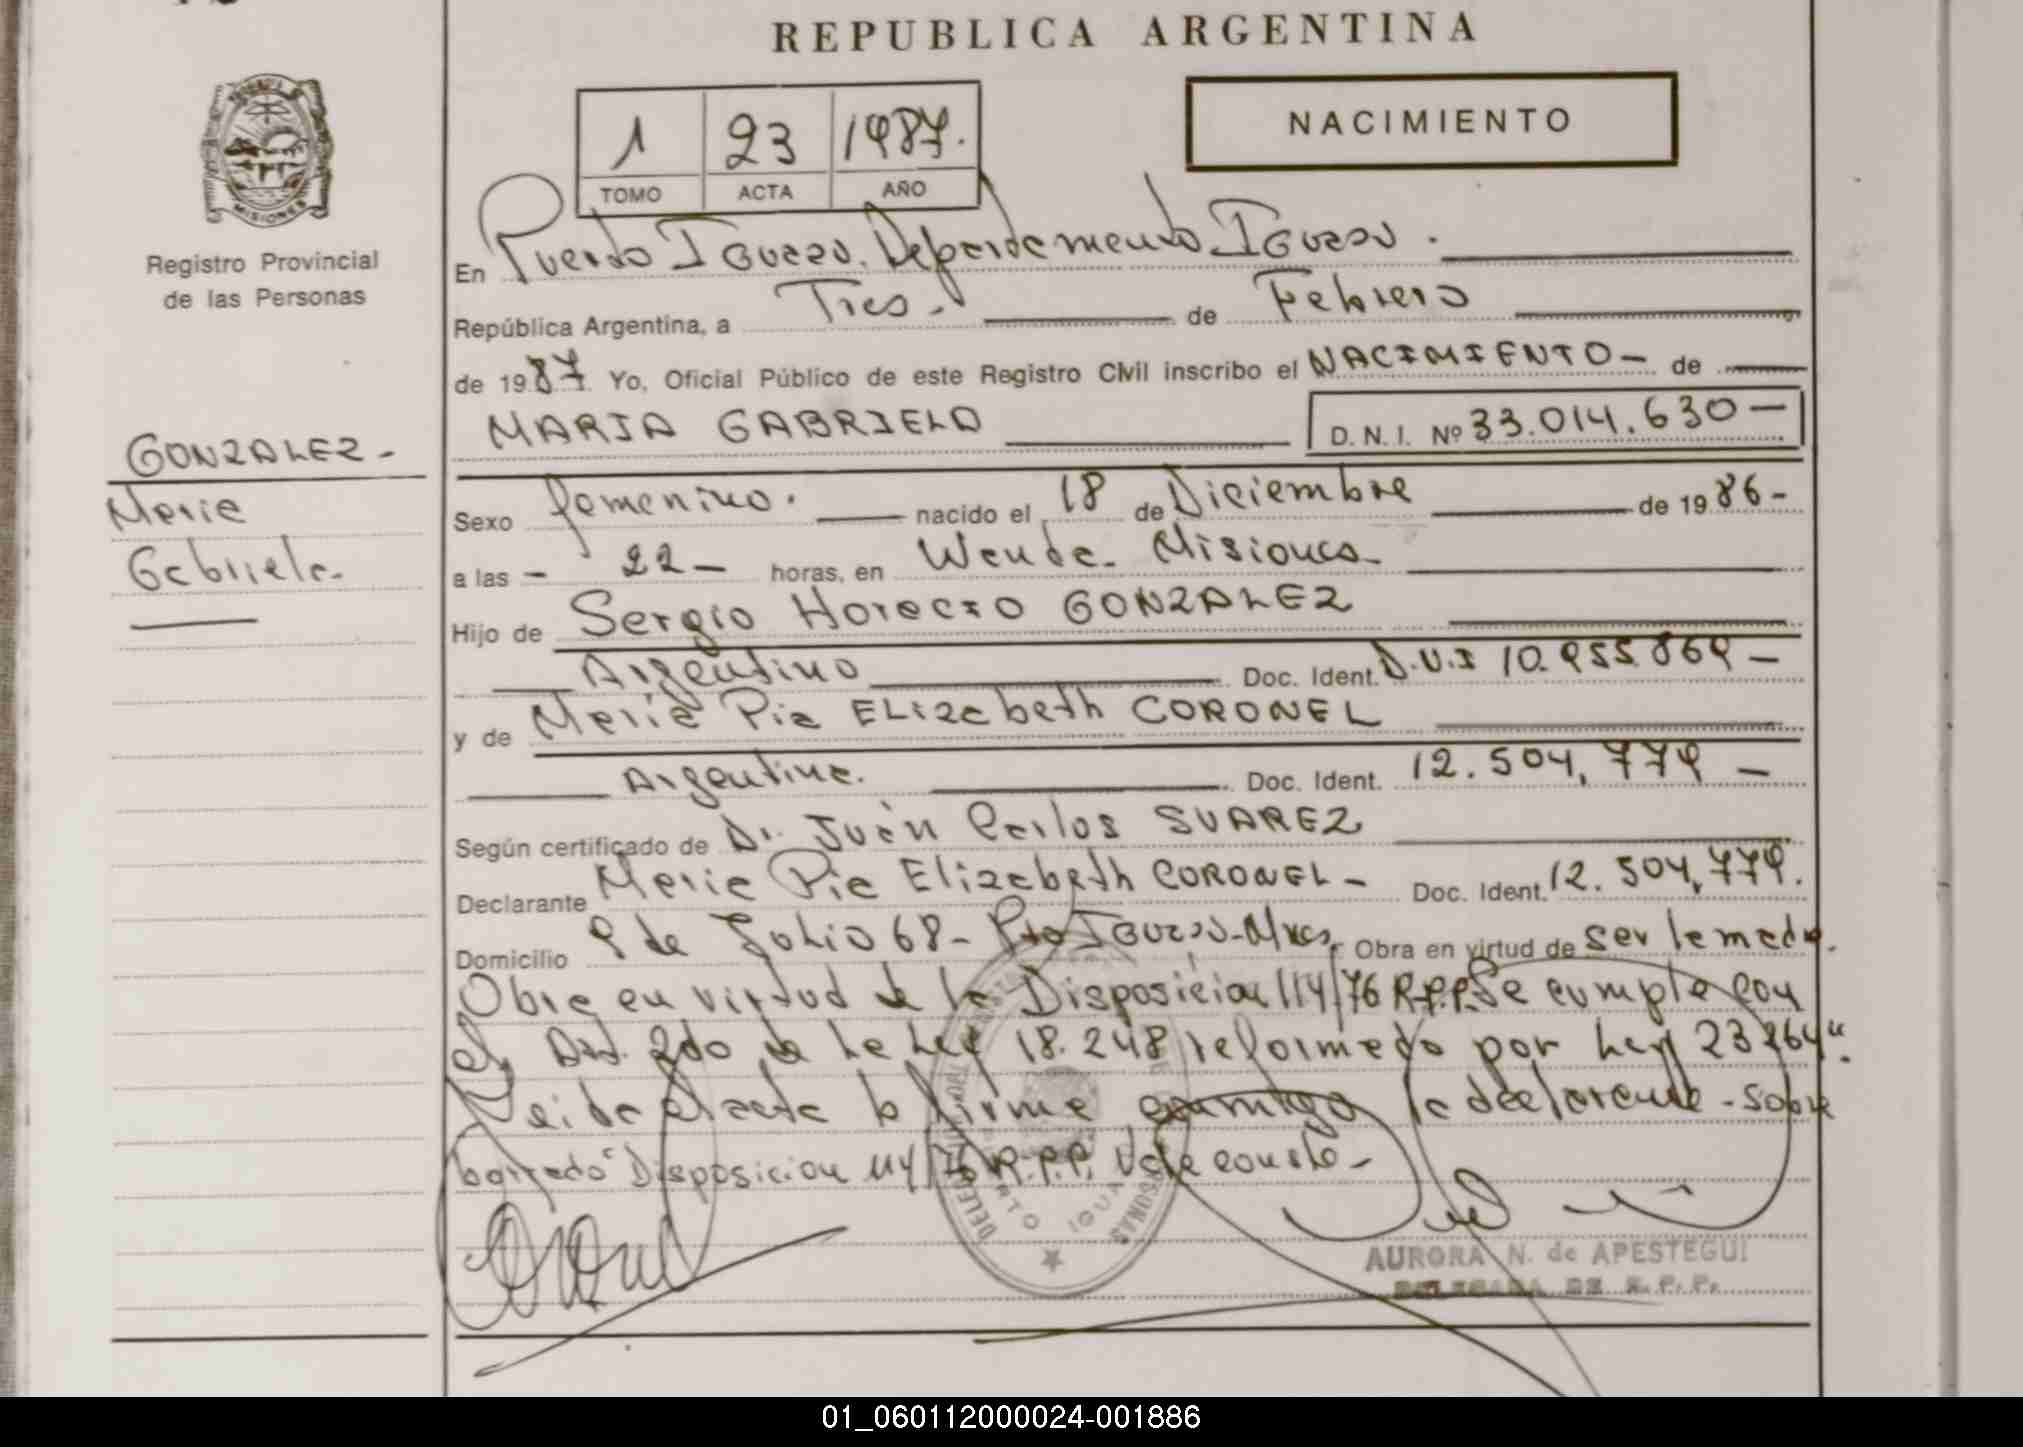 REPUBLICA ARGENTINA
MISIONES
Registro Provincial
de las Personas
1 23 1987.
TOMO ACTA AÑO
NACIMIENTO
En Puerto Iguazu. Departamento Iguazu.
República Argentina, a Tres. de Febrero
de 1987. Yo, Oficial Público de este Registro Civil inscribo el NACIMIENTO- de
MARIA GABRIELA
D. N. I. Nº 33.014.630-
GONZALEZ-
Maria
Gabriela-
Sexo femenino. nacido el 18 de Diciembre de 1986-
a las - 22- horas, en Wanda- Misiones-
Hijo de Sergio Horacio GONZALEZ
Argentino Doc. Ident. D.N.I 10.955.869-
y de Maria Pia ELizabeth CORONEL
Argentina. Doc. Ident. 12.504.779-
Según certificado de Dr. Juan Carlos SUAREZ
Declarante Maria Pia Elizabeth CORONEL- Doc. Ident. 12.504.779.
Domicilio 9 de Julio 68- Pto Iguazu-Mnes Obra en virtud de ser la madre.
Obra en virtud de la Disposicion 114/76 R.P.P. Se cumple con
el Art. 2do de la Ley 18.248 reformado por Ley 23264".
Leida el acta la firma conmigo la declarante-Sobre
borrado "Disposicion 114/76 R.P.P. Vale conste-
AURORA N. de APESTEGUI
DELEGADA DE R.P.P.
01_060112000024-001886